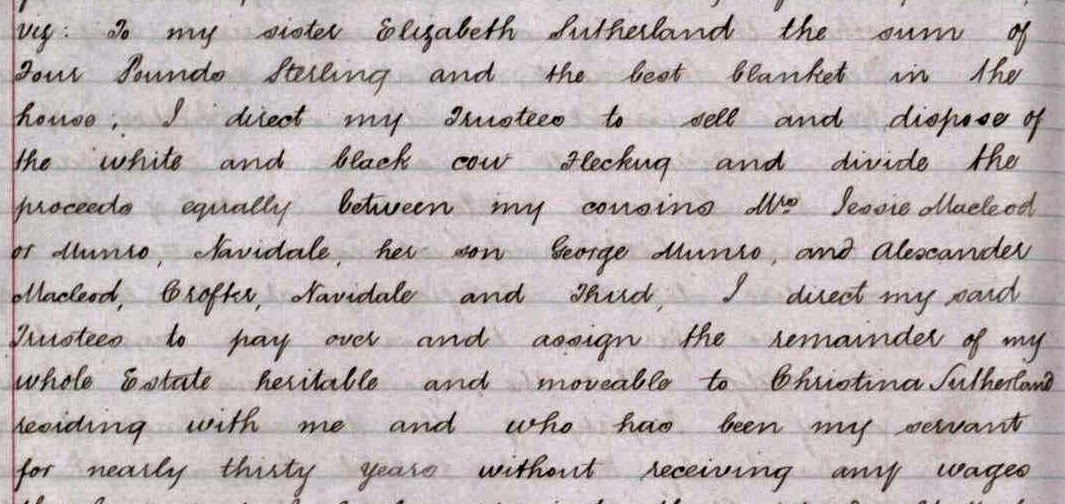 viz: To my sister Elizabeth Sutherland the sum of
Four Pounds Sterling and the best blanket in the
house, I direct my Trustees to sell and dispose of
the white and black cow Fleckug and divide the
proceeds equally between my cousins Mrs Jessie Macleod
or Munro, Navidale, her son George Munro, and Alexander
Macleod, Crofter, Navidale and Third, I direct my said
Trustees to pay over and assign the remainder of my
whole Estate heritable and moveable to Christina Sutherland
residing with me and who has been my servant
for nearly thirty years without receiving any wages